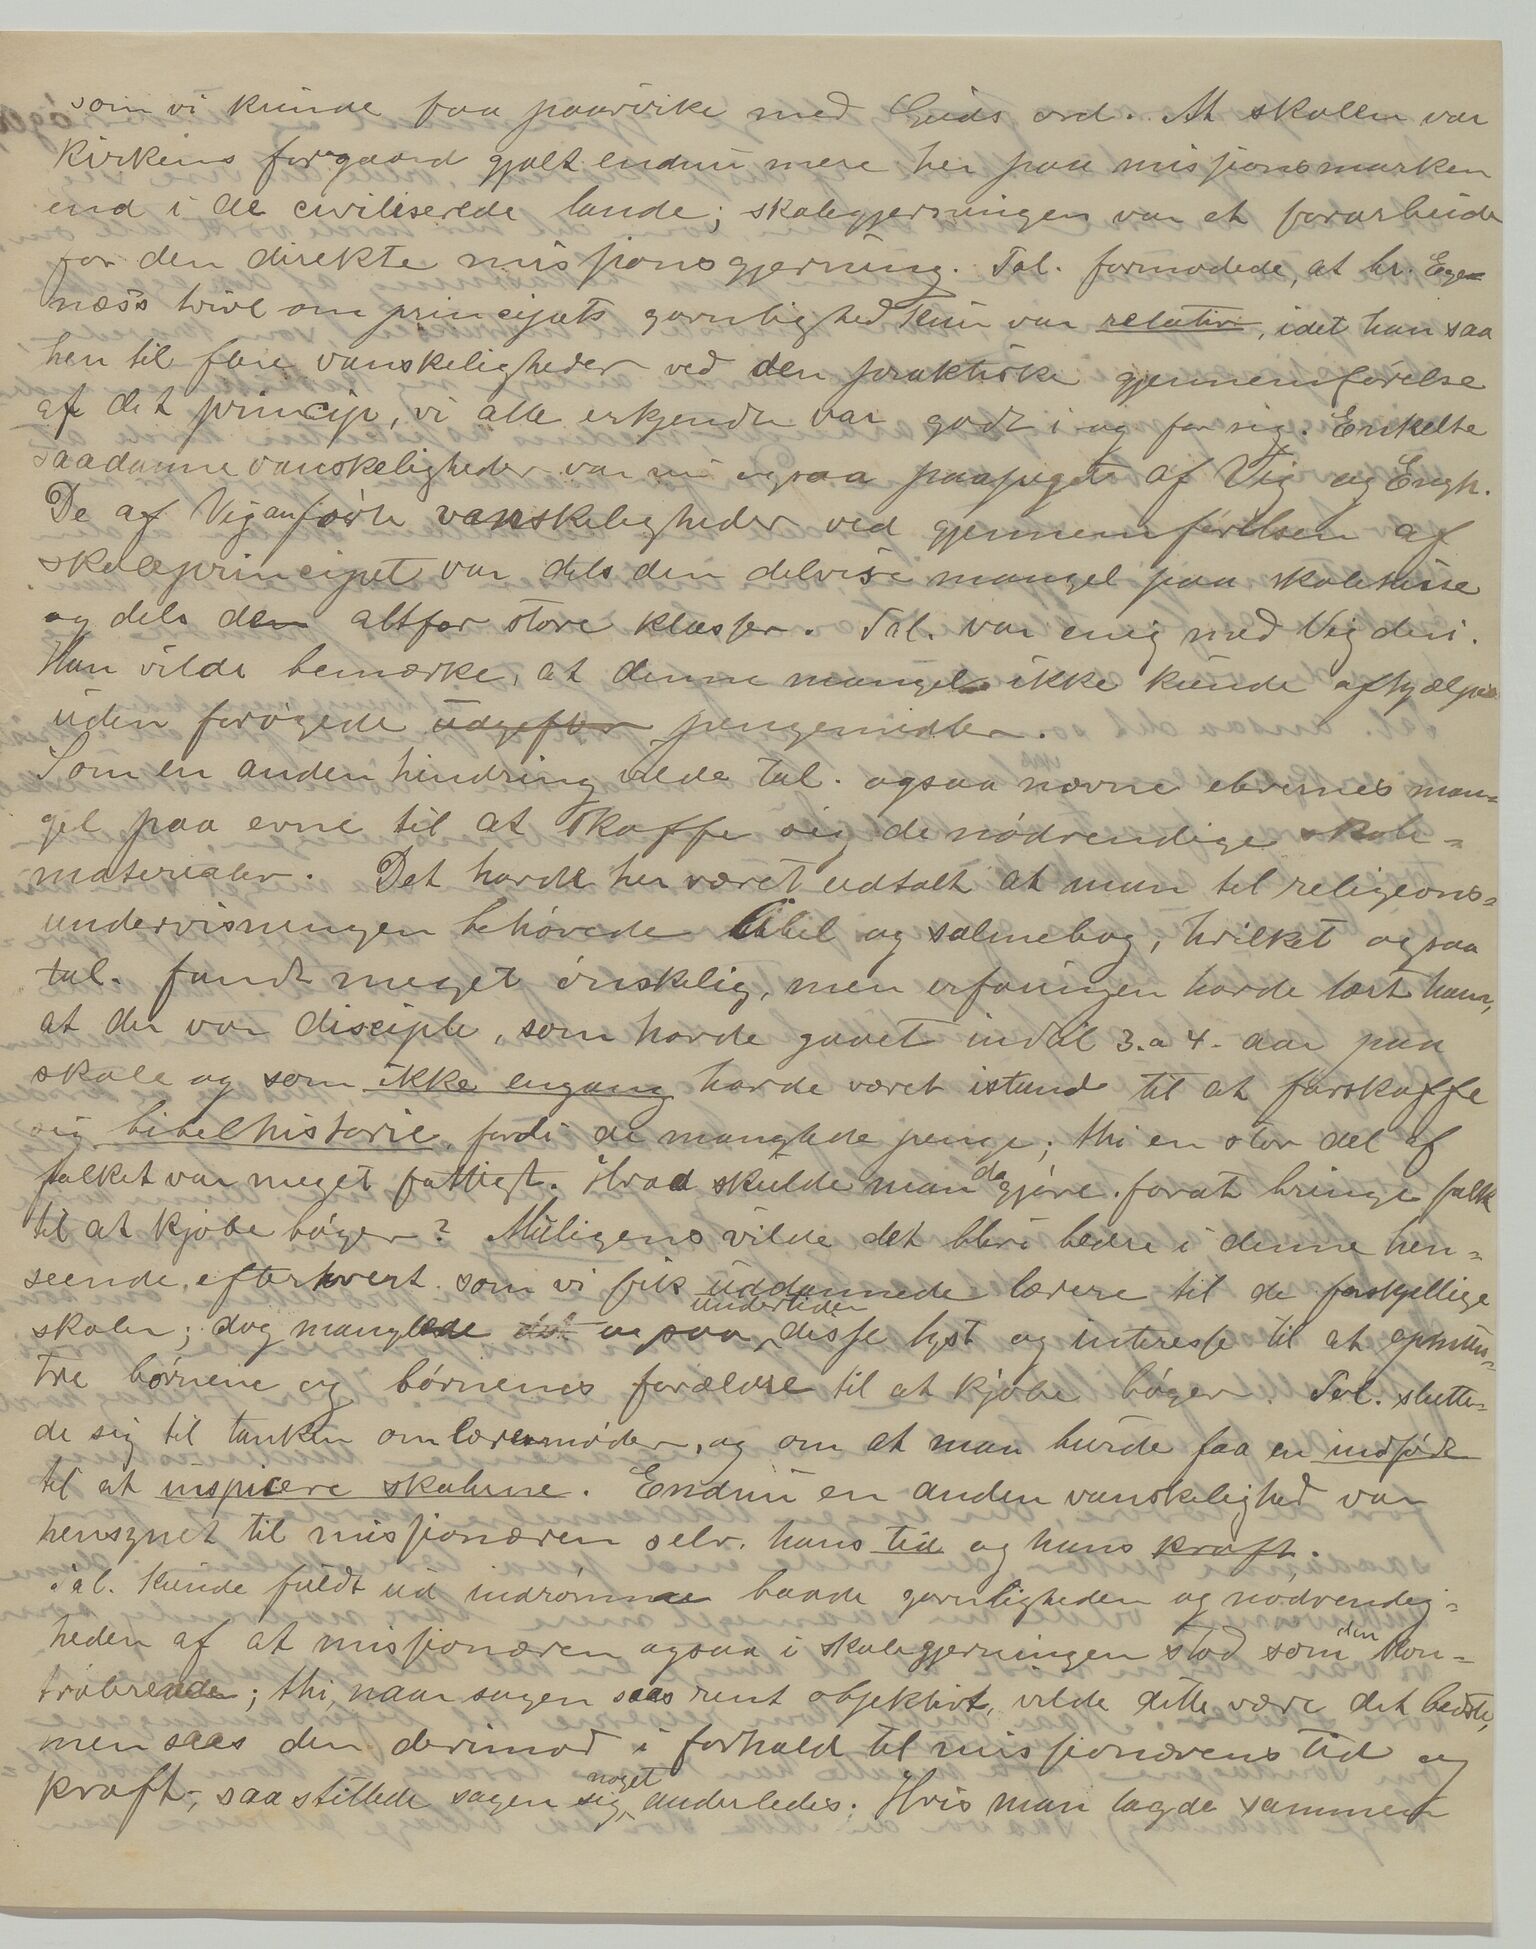 som vi kunde faa paavirke med Guds ord. At skolen var
kirkens forgaard gjalt endnu mere her paa missjonsmarken
end i de civiliserede lande; skolegjerningen var et forarbeide
for den direkte missjonsgjerning. Tal. formodede, at hr. Ege-
næs's tvivl om principets gavnlighed kun var relativ, idet han saa
hen til flere vanskeligheder ved den praktiske gjennemførelse
af det princip, vi alle erkjendte var godt i og for sig. Enkelte
saadanne vanskeligheder var nu ogsaa paapeget af Vig og Engh.
De af Vig anførte vanskeligheder ved gjennemførelsen af
skoleprincipet var dels den delvise mangel paa skolehuse
og dels den altfor store klasser. Tal. var enig med Vig deri.
Han vilde bemærke, at denne mangel ikke kunde afhjælpes
uden forøgede udgifter pengemidler.
Som en anden hindring vilde tal. ogsaa nævne elevernes man-
gel paa evne til at skaffe sig de nødvendige skole-
materialer. Det havde her været udtalt at man til religions-
undervisningen behøvede bibel og salmebog, hvilket ogsaa
tal. fandt meget ønskelig, men erfaringen havde lært ham,
at der var disciple, som havde gaaet indtil 3 a 4 aar paa
skole og som ikke engang havde været istand til at forskaffe
sig bibelhistorie, fordi de manglede penge; thi en stor del af
folket var meget fattigt. Hvad skulde man da gjøre forat bringe folk
til at kjøbe bøger? Muligens vilde det blive bedre i denne hen-
seende, efterhvert som vi fik uddannede lærere til de forskjellige
skoler; dog manglede det ogsaa undertiden disse lyst og interesse til at opmun-
tre børnene og børnenes forældre til at kjøbe bøger. Tal. slutte-
de sig til tanken om lærermøder, og om at man burde faa en indfødt
til at inspicere skolerne. Endnu en anden vanskelighed var
hensynet til missjonæren selv, hans tid og hans kraft.
Tal. kunde fuldt ud indrømme baade gavnligheden og nødvendig-
heden af at missjonæren ogsaa i skolegjerningen stod som den kon-
trolerende; thi, naar sagen saaes rent objektivt, vilde dette være det bedste,
men saaes den derimod i forhold til missjonærens tid og
kraft, saa stillede sagen sig noget anderledes. Hvis man lagde sammen